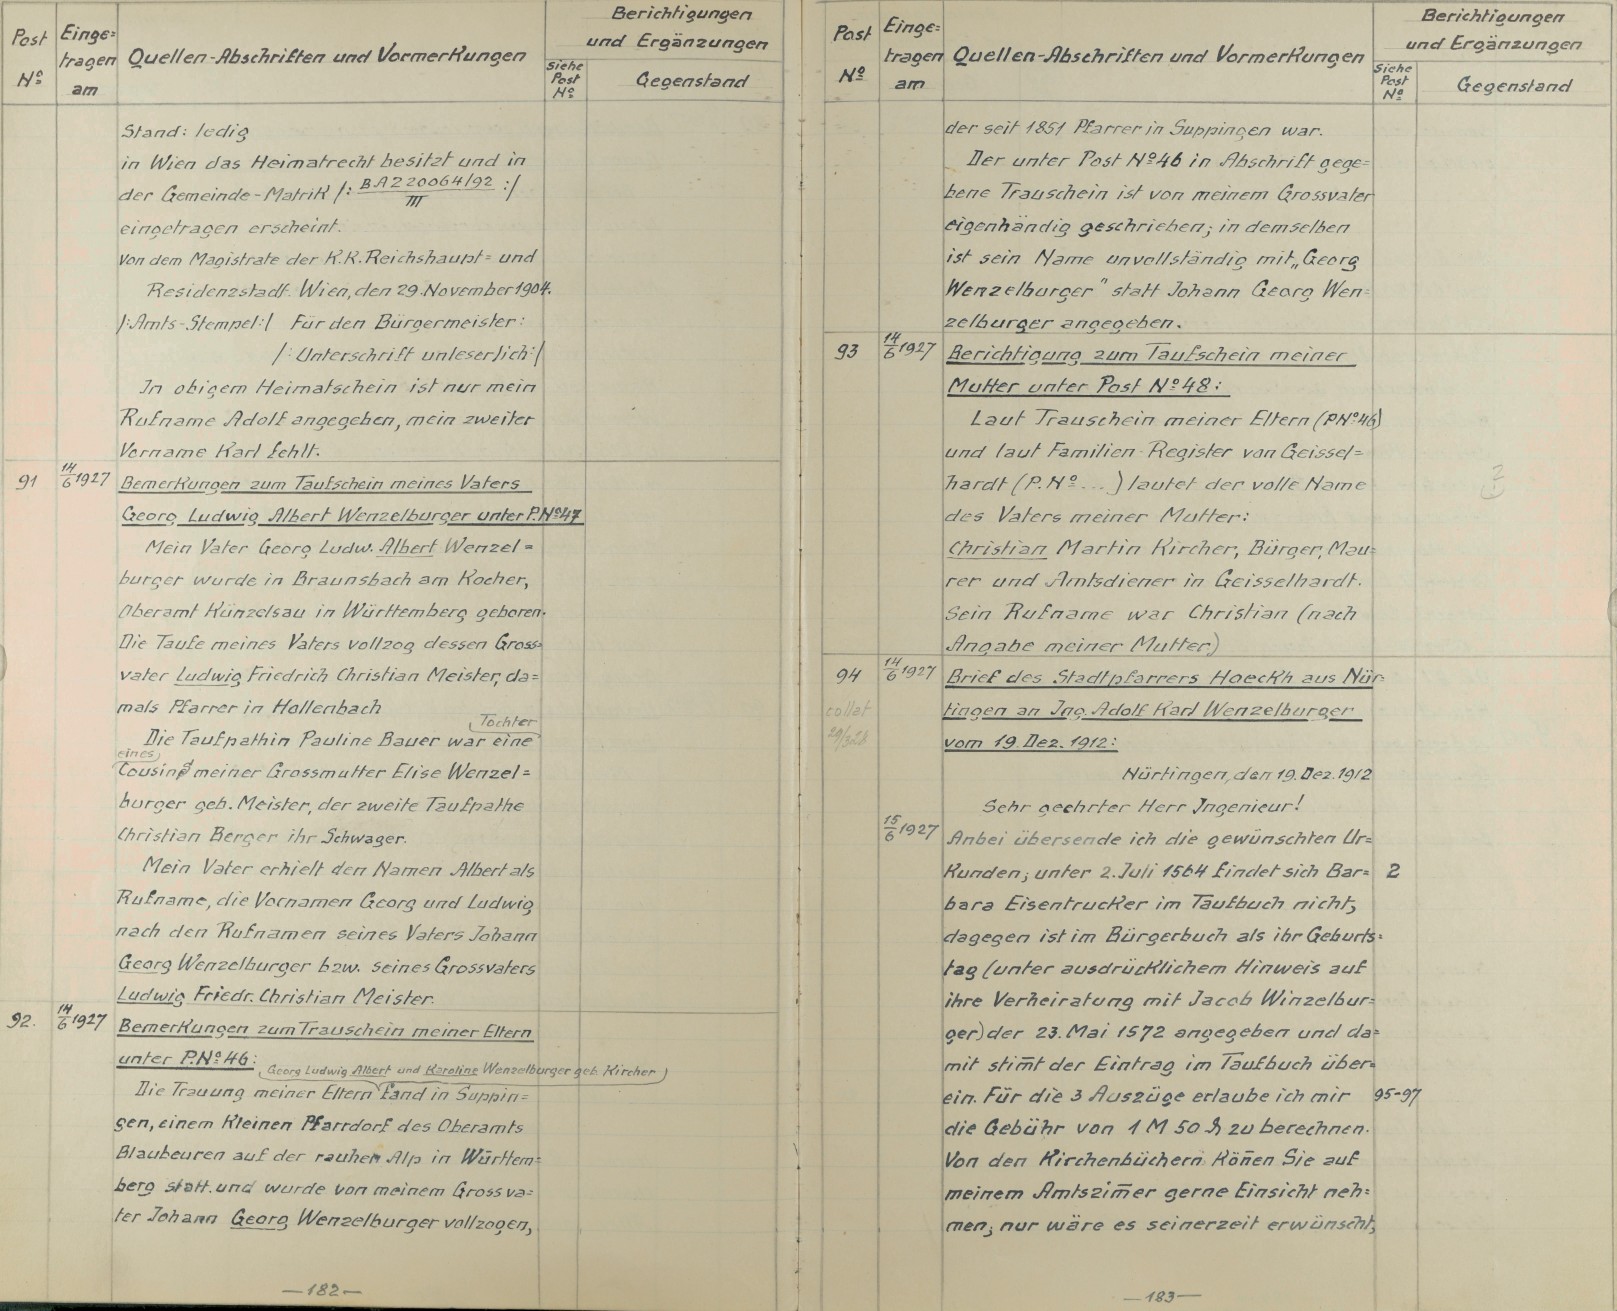 Post Nº
Eingetragen am
Quellen-Abschriften und Vormerkungen
Berichtigungen und Ergänzungen
Siehe Post Nº
Gegenstand
Stand: ledig
in Wien das Heimatrecht besitzt und in
der Gemeinde-Matrik /: BAZ 20064/92 / III :/
eingetragen erscheint.
Von dem Magistrate der K.K. Reichshaupt= und
Residenzstadt Wien, den 29. November 1904.
/:Amts-Stempel:/ Für den Bürgermeister:
/: Unterschrift unleserlich:/
In obigem Heimatschein ist nur mein
Rufname Adolf angegeben, mein zweiter
Vorname Karl fehlt.
91 14/6 1927 Bemerkungen zum Taufschein meines Vaters
Georg Ludwig Albert Wenzelburger unter P.Nº47
Mein Vater Georg Ludw. Albert Wenzel=
burger wurde in Braunsbach am Kocher,
Oberamt Künzelsau in Württemberg geboren.
Die Taufe meines Vaters vollzog dessen Gross=
vater Ludwig Friedrich Christian Meister, da=
mals Pfarrer in Hollenbach
Tochter
Die Taufpathin Pauline Bauer war eine
eines
Cousins meiner Grossmutter Elise Wenzel=
burger geb. Meister, der zweite Taufpathe
Christian Berger ihr Schwager.
Mein Vater erhielt den Namen Albert als
Rufname, die Vornamen Georg und Ludwig
nach den Rufnamen seines Vaters Johann
Georg Wenzelburger bzw. seines Grossvaters
Ludwig Friedr. Christian Meister.
92. 14/6 1927 Bemerkungen zum Trauschein meiner Eltern
unter P.Nº46:
Georg Ludwig Albert und Karoline Wenzelburger geb. Kircher
Die Trauung meiner Eltern fand in Suppin=
gen, einem kleinen Pfarrdorf des Oberamts
Blaubeuren auf der rauhen Alp in Württem=
berg statt. und wurde von meinem Grossva=
ter Johann Georg Wenzelburger vollzogen,
—182—
Post Nº
Eingetragen am
Quellen-Abschriften und Vormerkungen
Berichtigungen und Ergänzungen
Siehe Post Nº
Gegenstand
der seit 1851 Pfarrer in Suppingen war.
Der unter Post Nº46 in Abschrift gege=
bene Trauschein ist von meinem Grossvater
eigenhändig geschrieben; in demselben
ist sein Name unvollständig mit „Georg
Wenzelburger" statt Johann Georg Wen=
zelburger angegeben.
93 14/6 1927 Berichtigung zum Taufschein meiner
Mutter unter Post Nº48:
Laut Trauschein meiner Eltern (PNº46)
und laut Familien-Register von Geissel=
hardt (P.Nº...) lautet der volle Name
des Vaters meiner Mutter:
Christian Martin Kircher, Bürger, Mau=
rer und Amtsdiener in Geisselhardt.
Sein Rufname war Christian (nach
Angabe meiner Mutter)
94 14/6 1927 Brief des Stadtpfarrers Hoeckh aus Nür=
tingen an Ing. Adolf Karl Wenzelburger
collat
vom 19. Dez. 1912:
Nürtingen, den 19. Dez. 1912
Sehr geehrter Herr Ingenieur!
15/6 1927 Anbei übersende ich die gewünschten Ur=
kunden; unter 2. Juli 1564 findet sich Bar= 2
bara Eisentrucker im Taufbuch nicht,
dagegen ist im Bürgerbuch als ihr Geburts=
tag (unter ausdrücklichem Hinweis auf
ihre Verheiratung mit Jacob Winzelbur=
ger) der 23. Mai 1572 angegeben und da=
mit stim̄t der Eintrag im Taufbuch über=
ein. Für die 3 Auszüge erlaube ich mir 95-97
die Gebühr von 1 M 50 ₰ zu berechnen.
Von den Kirchenbüchern kön̄en Sie auf
meinem Amtszim̄er gerne Einsicht neh=
men; nur wäre es seinerzeit erwünscht,
—183—